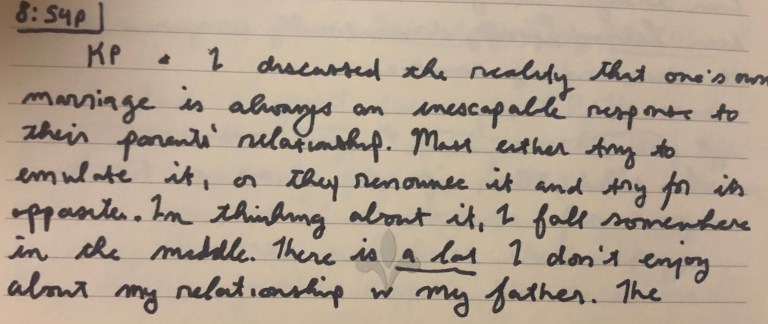 8:54p
KP & I discussed the reality that one's own
marriage is always an inescapable response to
their parents' relationship. Most either try to
emulate it, or they renounce it and try for its
opposite. In thinking about it, I fall somewhere
in the middle. There is a lot I don't enjoy
about my relationship w my father. The